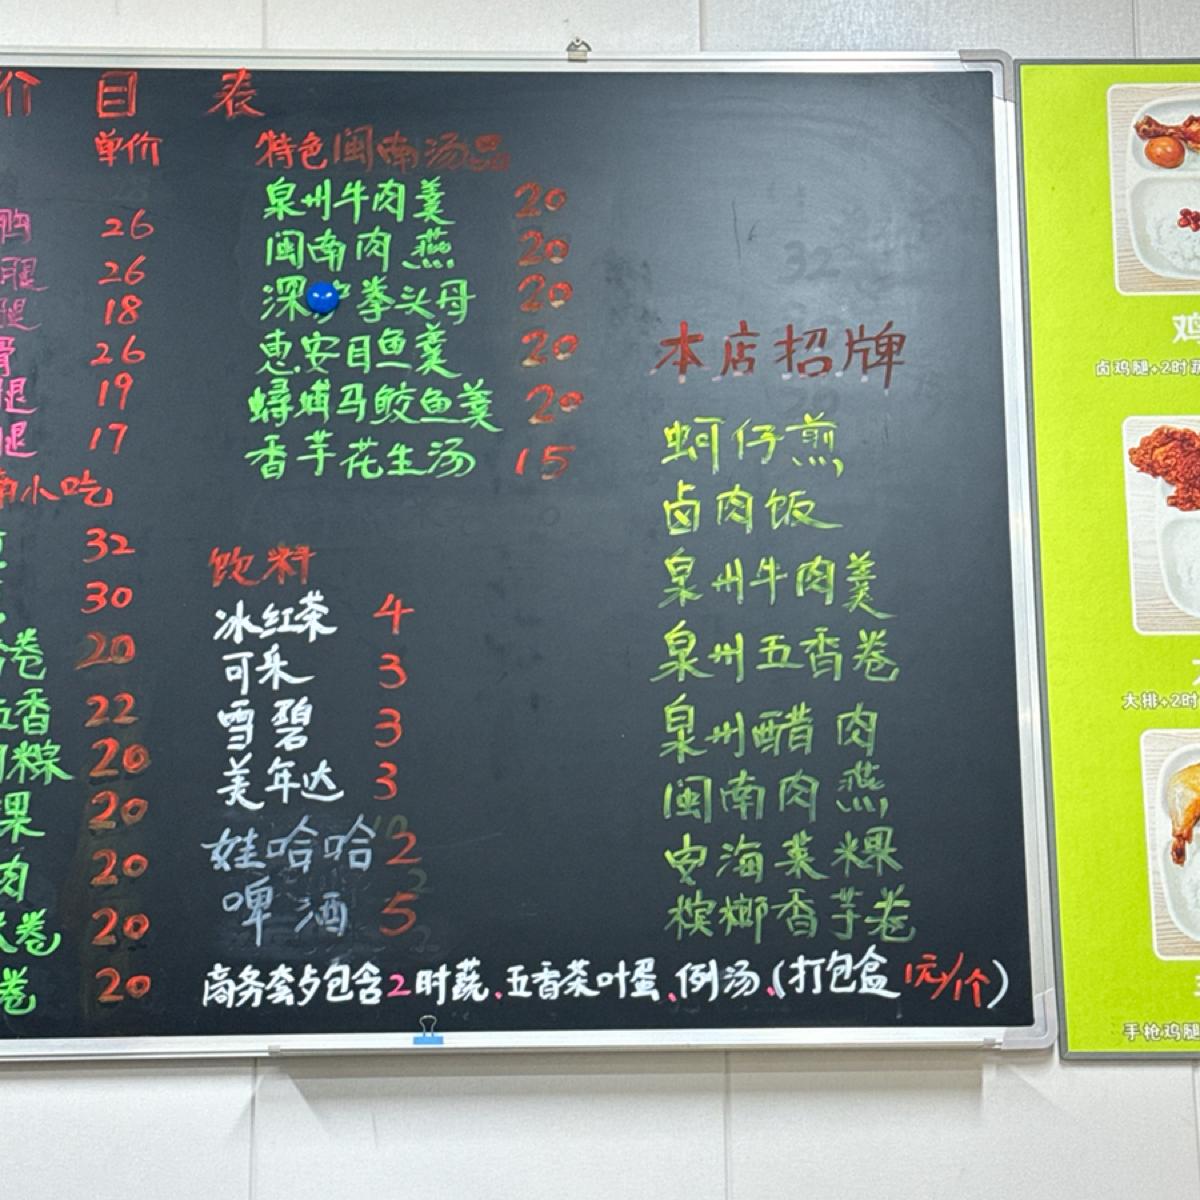 价目表
单价
26
腿 26
腿 18
骨 26
腿 19
腿 17
南小吃
32
30
卷 20
五香 22
粽 20
粿 20
肉 20
卷 20
卷 20
特色闽南汤品
泉州牛肉羹 20
闽南肉燕 20
深沪拳头母 20
惠安目鱼羹 20
蟳埔马鲛鱼羹 20
香芋花生汤 15
饮料
冰红茶 4
可乐 3
雪碧 3
美年达 3
娃哈哈 2
啤酒 5
本店招牌
蚵仔煎
卤肉饭
泉州牛肉羹
泉州五香卷
泉州醋肉
闽南肉燕
安海菜粿
槟榔香芋卷
商务套餐包含2时蔬、五香茶叶蛋、例汤、(打包盒1元/个)
鸡
卤鸡腿+2时蔬
大排+2时
手枪鸡腿